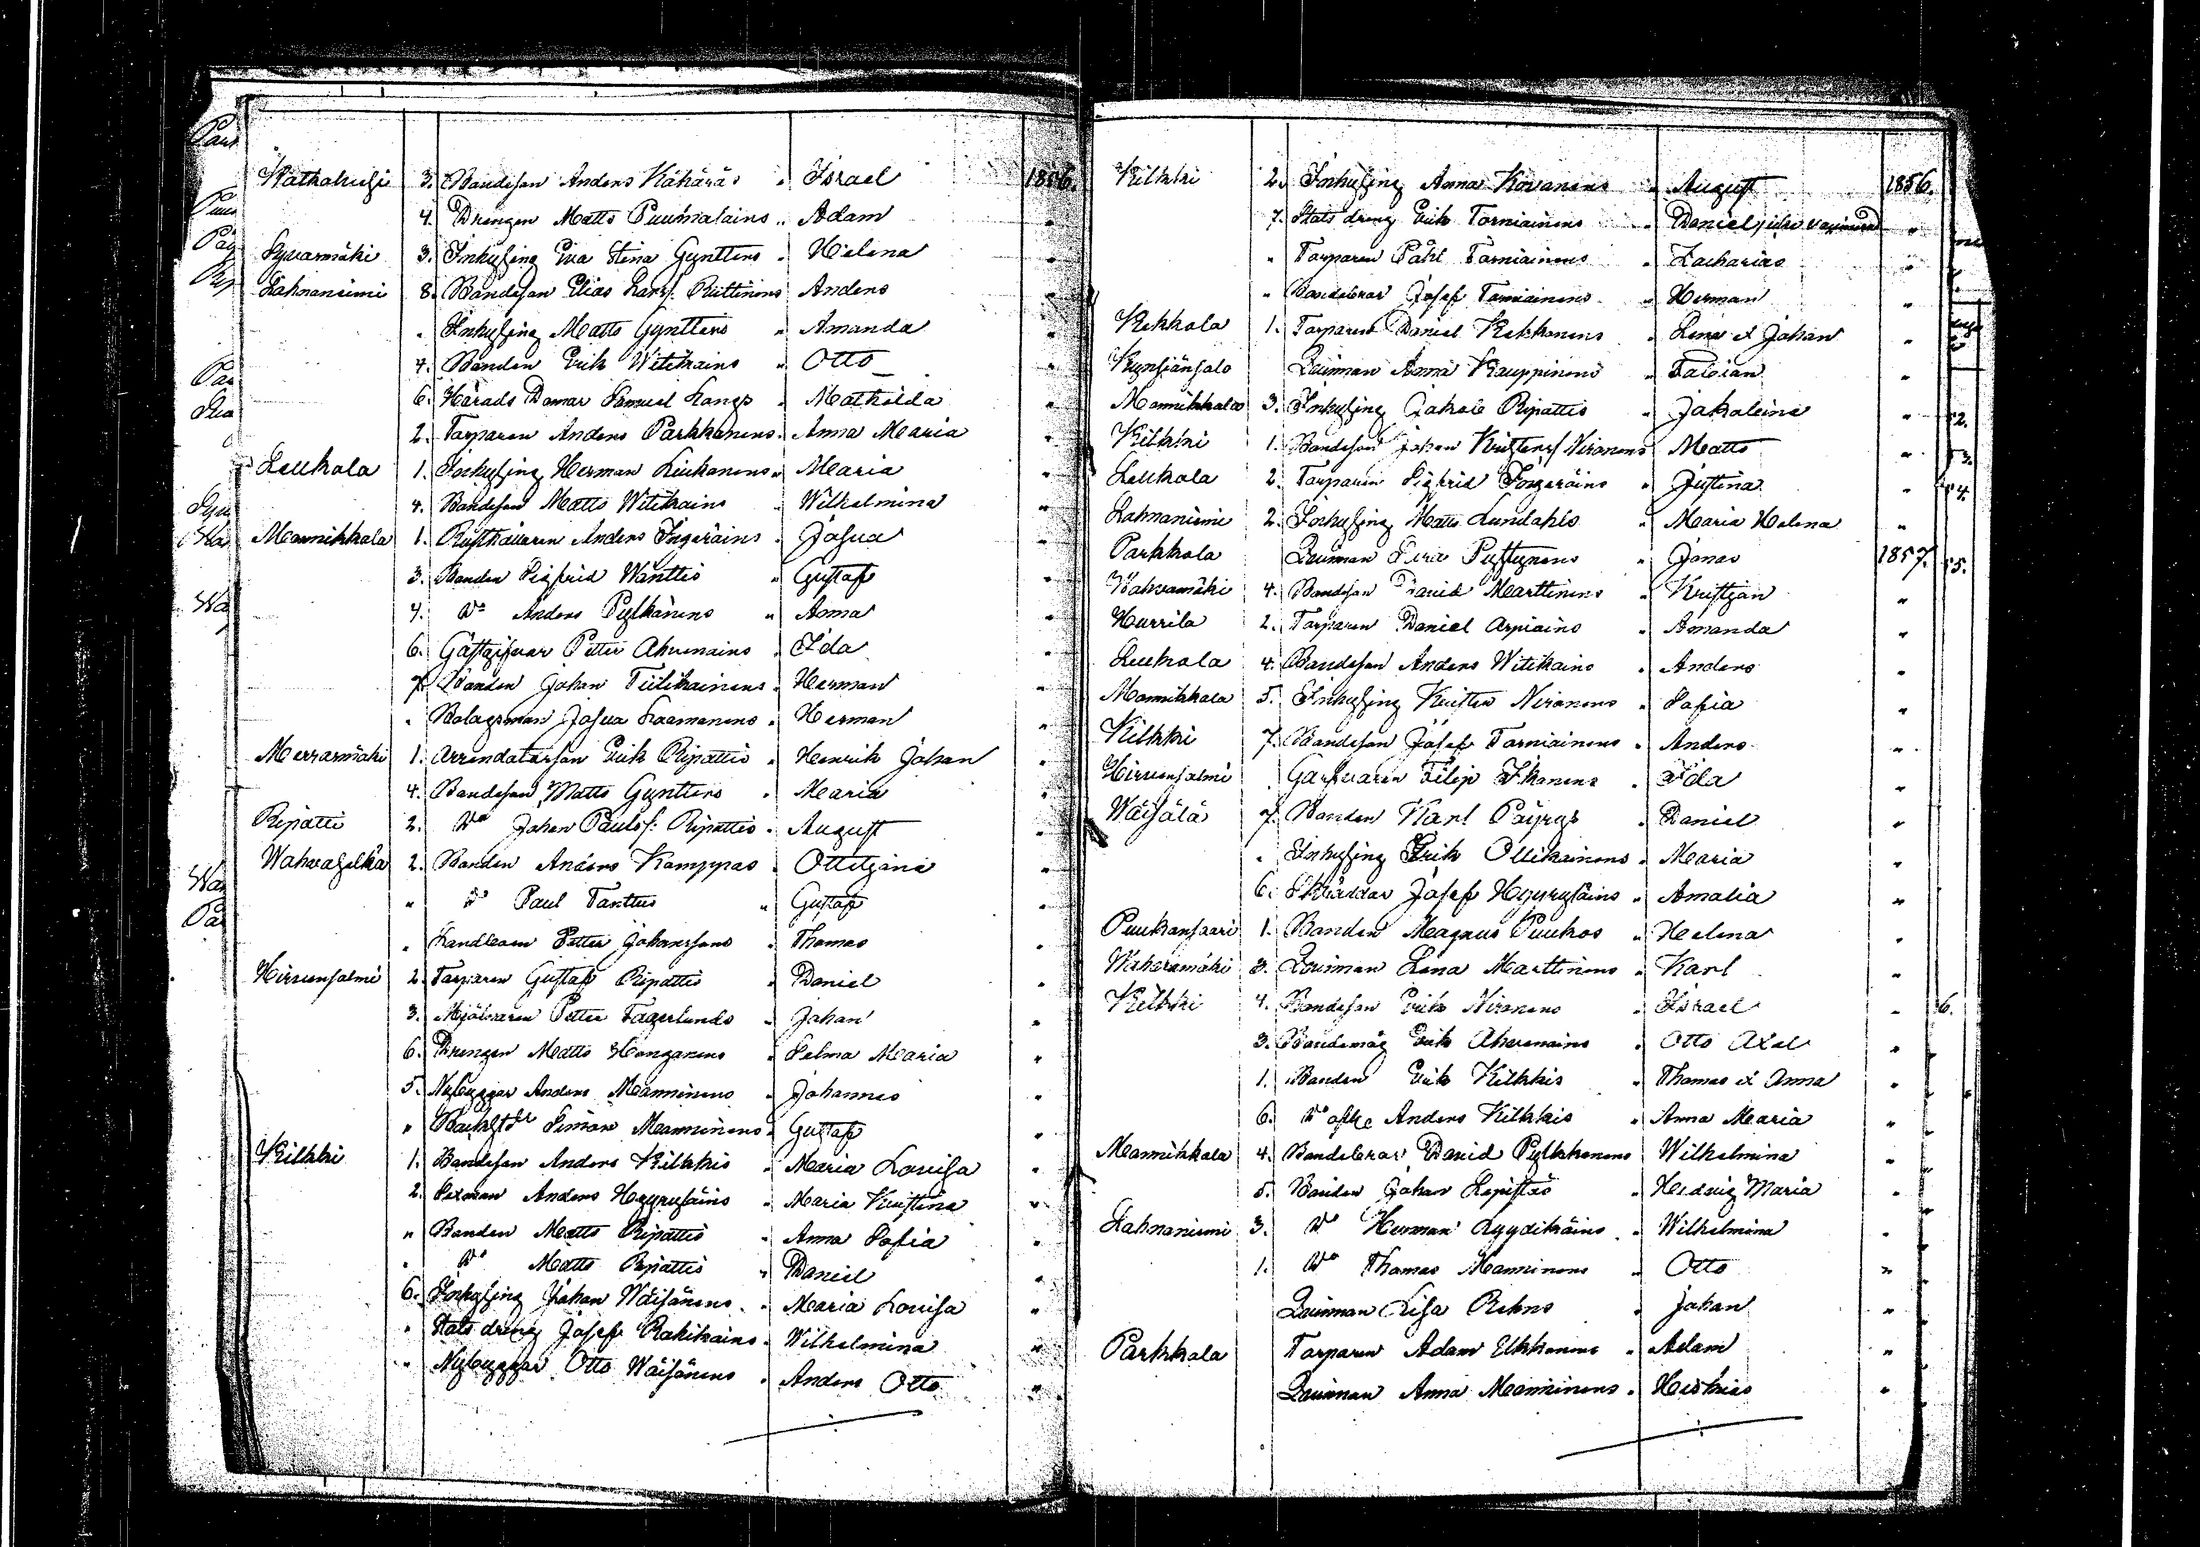 3. Bondeson Anders Kähäräs " Israel 1856.
4. Drengen Matts Puumalains " Adam "
Syvärmäki 3. Inhysing Eva Stina Gynthers " Helena "
Lahnaniemi 8. Bondeson Elias Larss. Riittinens Anders "
" Inhysing Matts Gynthers " Amanda "
4. Bonden Erik Witikains " Otto "
6. Härads Domar Samuel Langs " Mathilda "
2. Torparen Anders Parkkonens " Anna Maria "
Leukola 1. Inhysing Herman Liukonens " Maria "
4. Bondeson Matts Witikains " Wilhelmina "
Mannikkala 1. Rusthållaren Anders Ingeräins " Josua "
3. Bonden Sigfrid Wänttis " Gustaf "
4. Do Anders Pylkänens " Anna "
6. Gästgifvar Petter Ahvenains " Ida "
7. Bonden Johan Tiilikainens " Herman "
" Bolagsman Josua Laamanens " Herman "
1. Arrendatorson Erik Ripattis " Henrik Johan "
4. Bondeson Matts Gynthers " Maria "
Ripatti 2. Do Johan Paulss. Ripattis " August "
2. Bonden Anders Kamppas " Ottiljana "
" Do Paul Tanttus " Gustaf "
" Landbonn Petter Johanssons " Thomas "
Hirvensalmi 2. Torparen Gustaf Ripattis " Daniel "
3. Mjölnaren Petter Fagerlunds " Johan "
6. Drengen Matts Honganens " Selma Maria "
5. Nybyggar Anders Manninens " Johannes "
" Simon Manninens " Gustaf "
Kilkki 1. Bondeson Anders Kilkkis " Maria Lovisa "
2. Sexman Anders Heyrysäins " Maria Kristina "
" Bonden Matts Ripattis " Anna Sofia "
" Do Matts Ripattis " Daniel "
6. Inhysing Johan Wäisänens " Maria Lovisa "
" Stats dreng Josef Rakikains " Wilhelmina "
" Nybyggar Otto Wäisänens " Anders Otto "
Kilkki 2. Inhysing Anna Kovanens " August 1856.
7. Stats dreng Erik Torniainens " Daniel, icke vaccinerad "
" Torparen Påhl Torniainens " Zacharias "
" Bondebror Josef Torniainens " Herman "
Kekkola 1. Torparen Daniel Kekkonens " Lena et Johan "
Qvinnan Anna Kauppinens " Fabian "
Mannikkala 3. Inhysing Jakob Ripattis " Jakobina "
Kilkki 1. Bondeson Johan Kristerss. Niranens Matts "
Leukola 2. Torparen Sigfrid Ingeräins " Justina "
Lahnaniemi 2. Inhysing Matts Lundahls " Maria Helena "
Parkkola Qvinnan " Jonas 1857.
4. Bondeson David Marttinens " Kristjan "
Hurrila 2. Torparen Daniel Arpiains " Amanda "
Leukola 4. Bondeson Anders Witikains " Anders "
Mannikkala 5. Inhysing Krister Niranens " Sofia "
Kilkki 7. Bondeson Josef Torniainens " Anders "
Hirvensalmi Garfvaren Filip Ikonens " Ida "
Wäisälä 7. Bonden Karl Päyrys " Daniel "
" Inhysing Erik Ollikainens " Maria "
6. Skräddar Josef Heyrysäins " Amalia "
Puukonsaari 1. Bonden Magnus Puukos " Helena "
3. Qvinnan Lena Marttinens " Karl "
Kilkki 4. Bondeson Erik Niranens " Israel "
3. Bondemåg Erik Ahvenains " Otto Axel "
1. Bonden Erik Kilkkis " Thomas et Anna "
6. Do Anders Kilkkis " Anna Maria "
Mannikkala 4. Bondebror David Pylkkänens Wilhelmina "
5. Bonden Johan Lepistös " Hedvig Maria "
Lahnaniemi 3. Do Herman Ryydikäins " Wilhelmina "
1. Do Thomas Manninens " Otto "
Qvinnan Lisa Rehns " Johan "
Parkkola Torparen Adam Ukkonens " Adam "
Qvinnan Anna Manninens " Heskias "